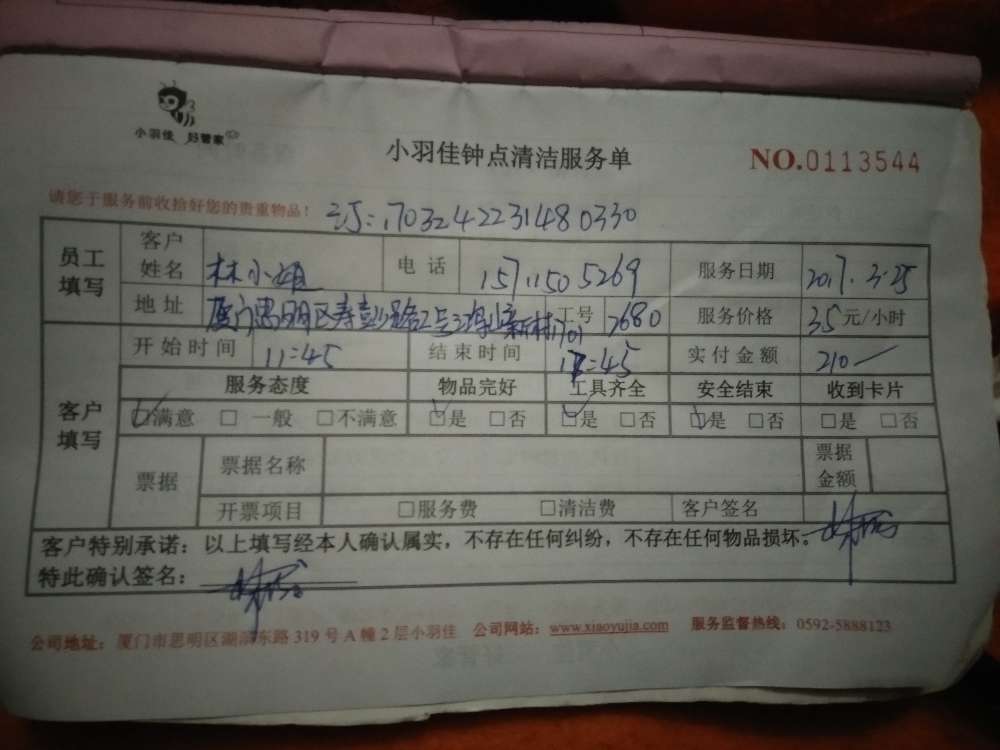 小羽佳 好管家
小羽佳钟点清洁服务单
NO.0113544
请您于服务前收拾好您的贵重物品!
订:1703242231480330
员工填写 客户姓名 林小姐 电话 15711505269 服务日期 2017.3.25
地址 厦门思明区寿彭路2号 新村 1701 工号 7680 服务价格 35元/小时
开始时间 11:45 结束时间 17:45 实付金额 210
客户填写 服务态度 物品完好 工具齐全 安全结束 收到卡片
□满意 □一般 □不满意 □是 □否 □是 □否 □是 □否 □是 □否
票据 票据名称 票据金额
开票项目 □服务费 □清洁费 客户签名
客户特别承诺:以上填写经本人确认属实,不存在任何纠纷,不存在任何物品损坏。
特此确认签名:
公司地址:厦门市思明区湖滨东路319号A幢2层小羽佳 公司网站:www.xiaoyujia.com 服务监督热线:0592-5888123